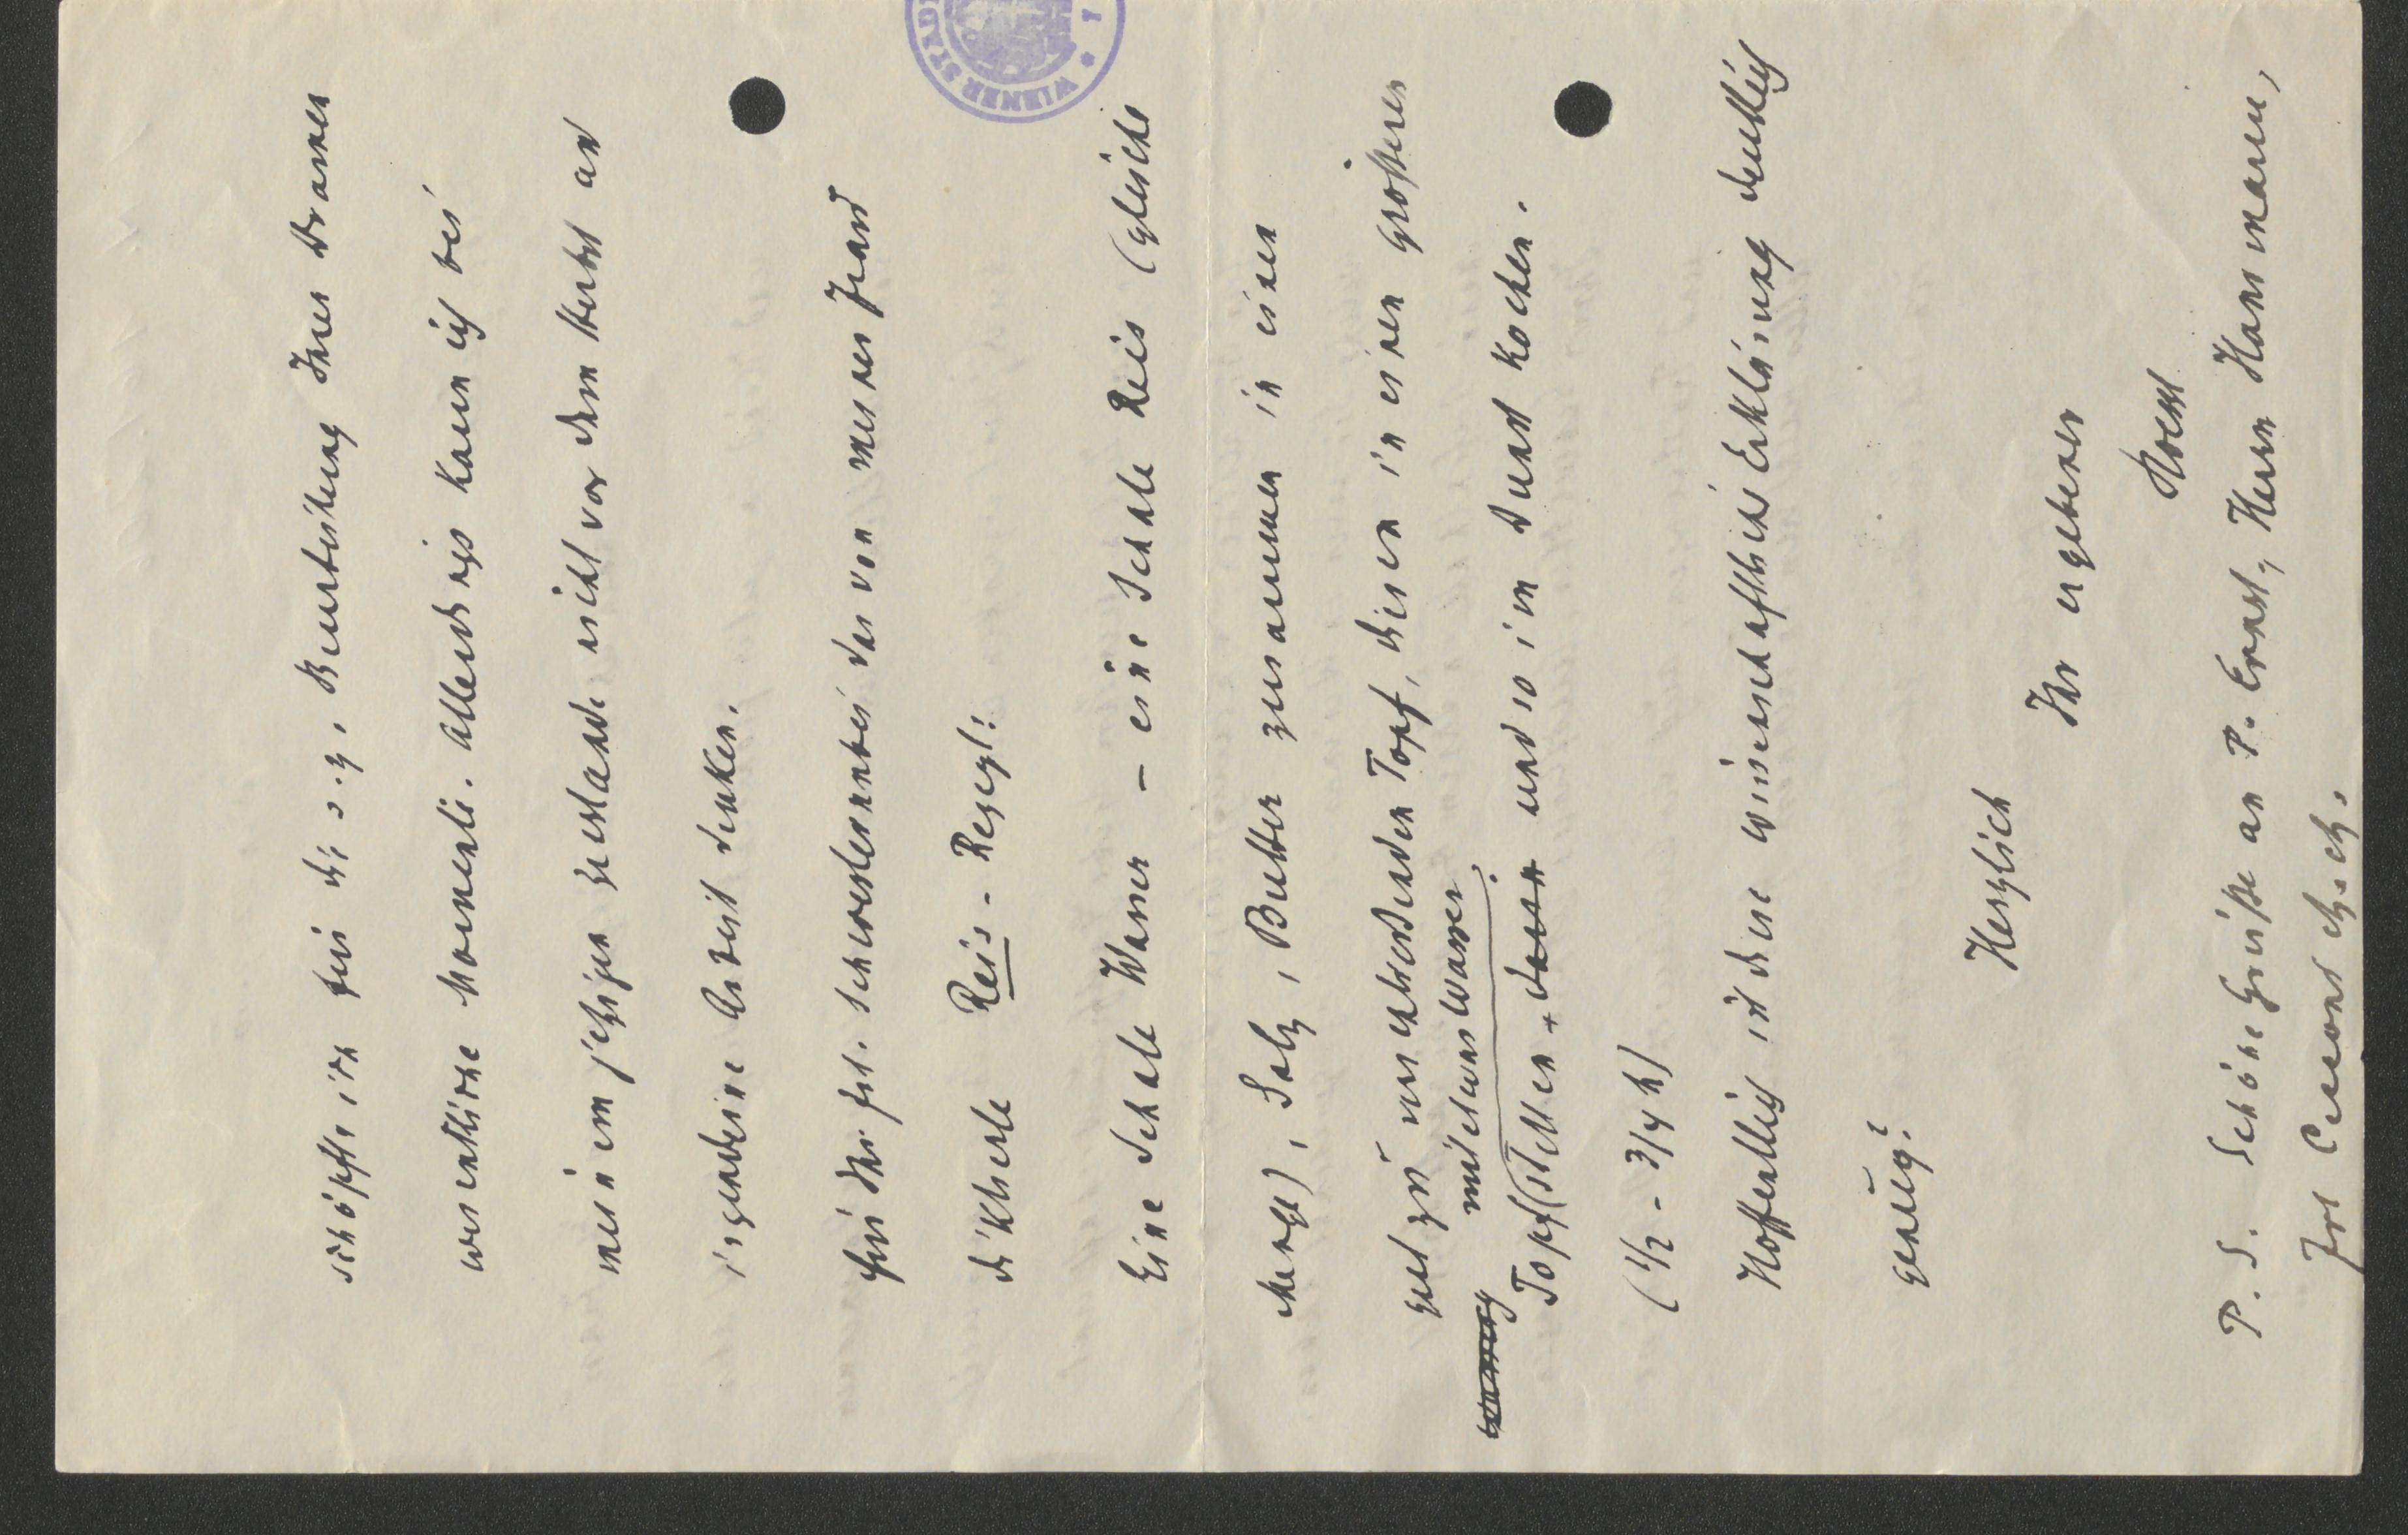 schöpfte ich für die s.g. Beurteilung Ihres Dramas
wesentliche Momente. Allerdings kann ich bei
meinem jetzigen Zustande nicht vor dem Herbst an
irgendeine Arbeit denken.
Für Ihr frl. Schwester
diktierte Reis-Rezept:
Eine Schale Wasser – eine Schale Reis (gleiche
Menge), Salz, Butter zusammen in einen
gut zu verschließenden Topf, diesen in einen größeren
mit etwas Wasser.
Topf (stellen + dann und so im Dunst kochen.
(1/2 - 3/4 h)
Hoffentlich ist diese wissenschaftliche Erklärung deutlich
genug?
Herzlich
Ihr ergebener
P. S. Schöne Grüße an P. Ernst, Herrn Hansmann,
Frl etz. etz.
WIENER STADT